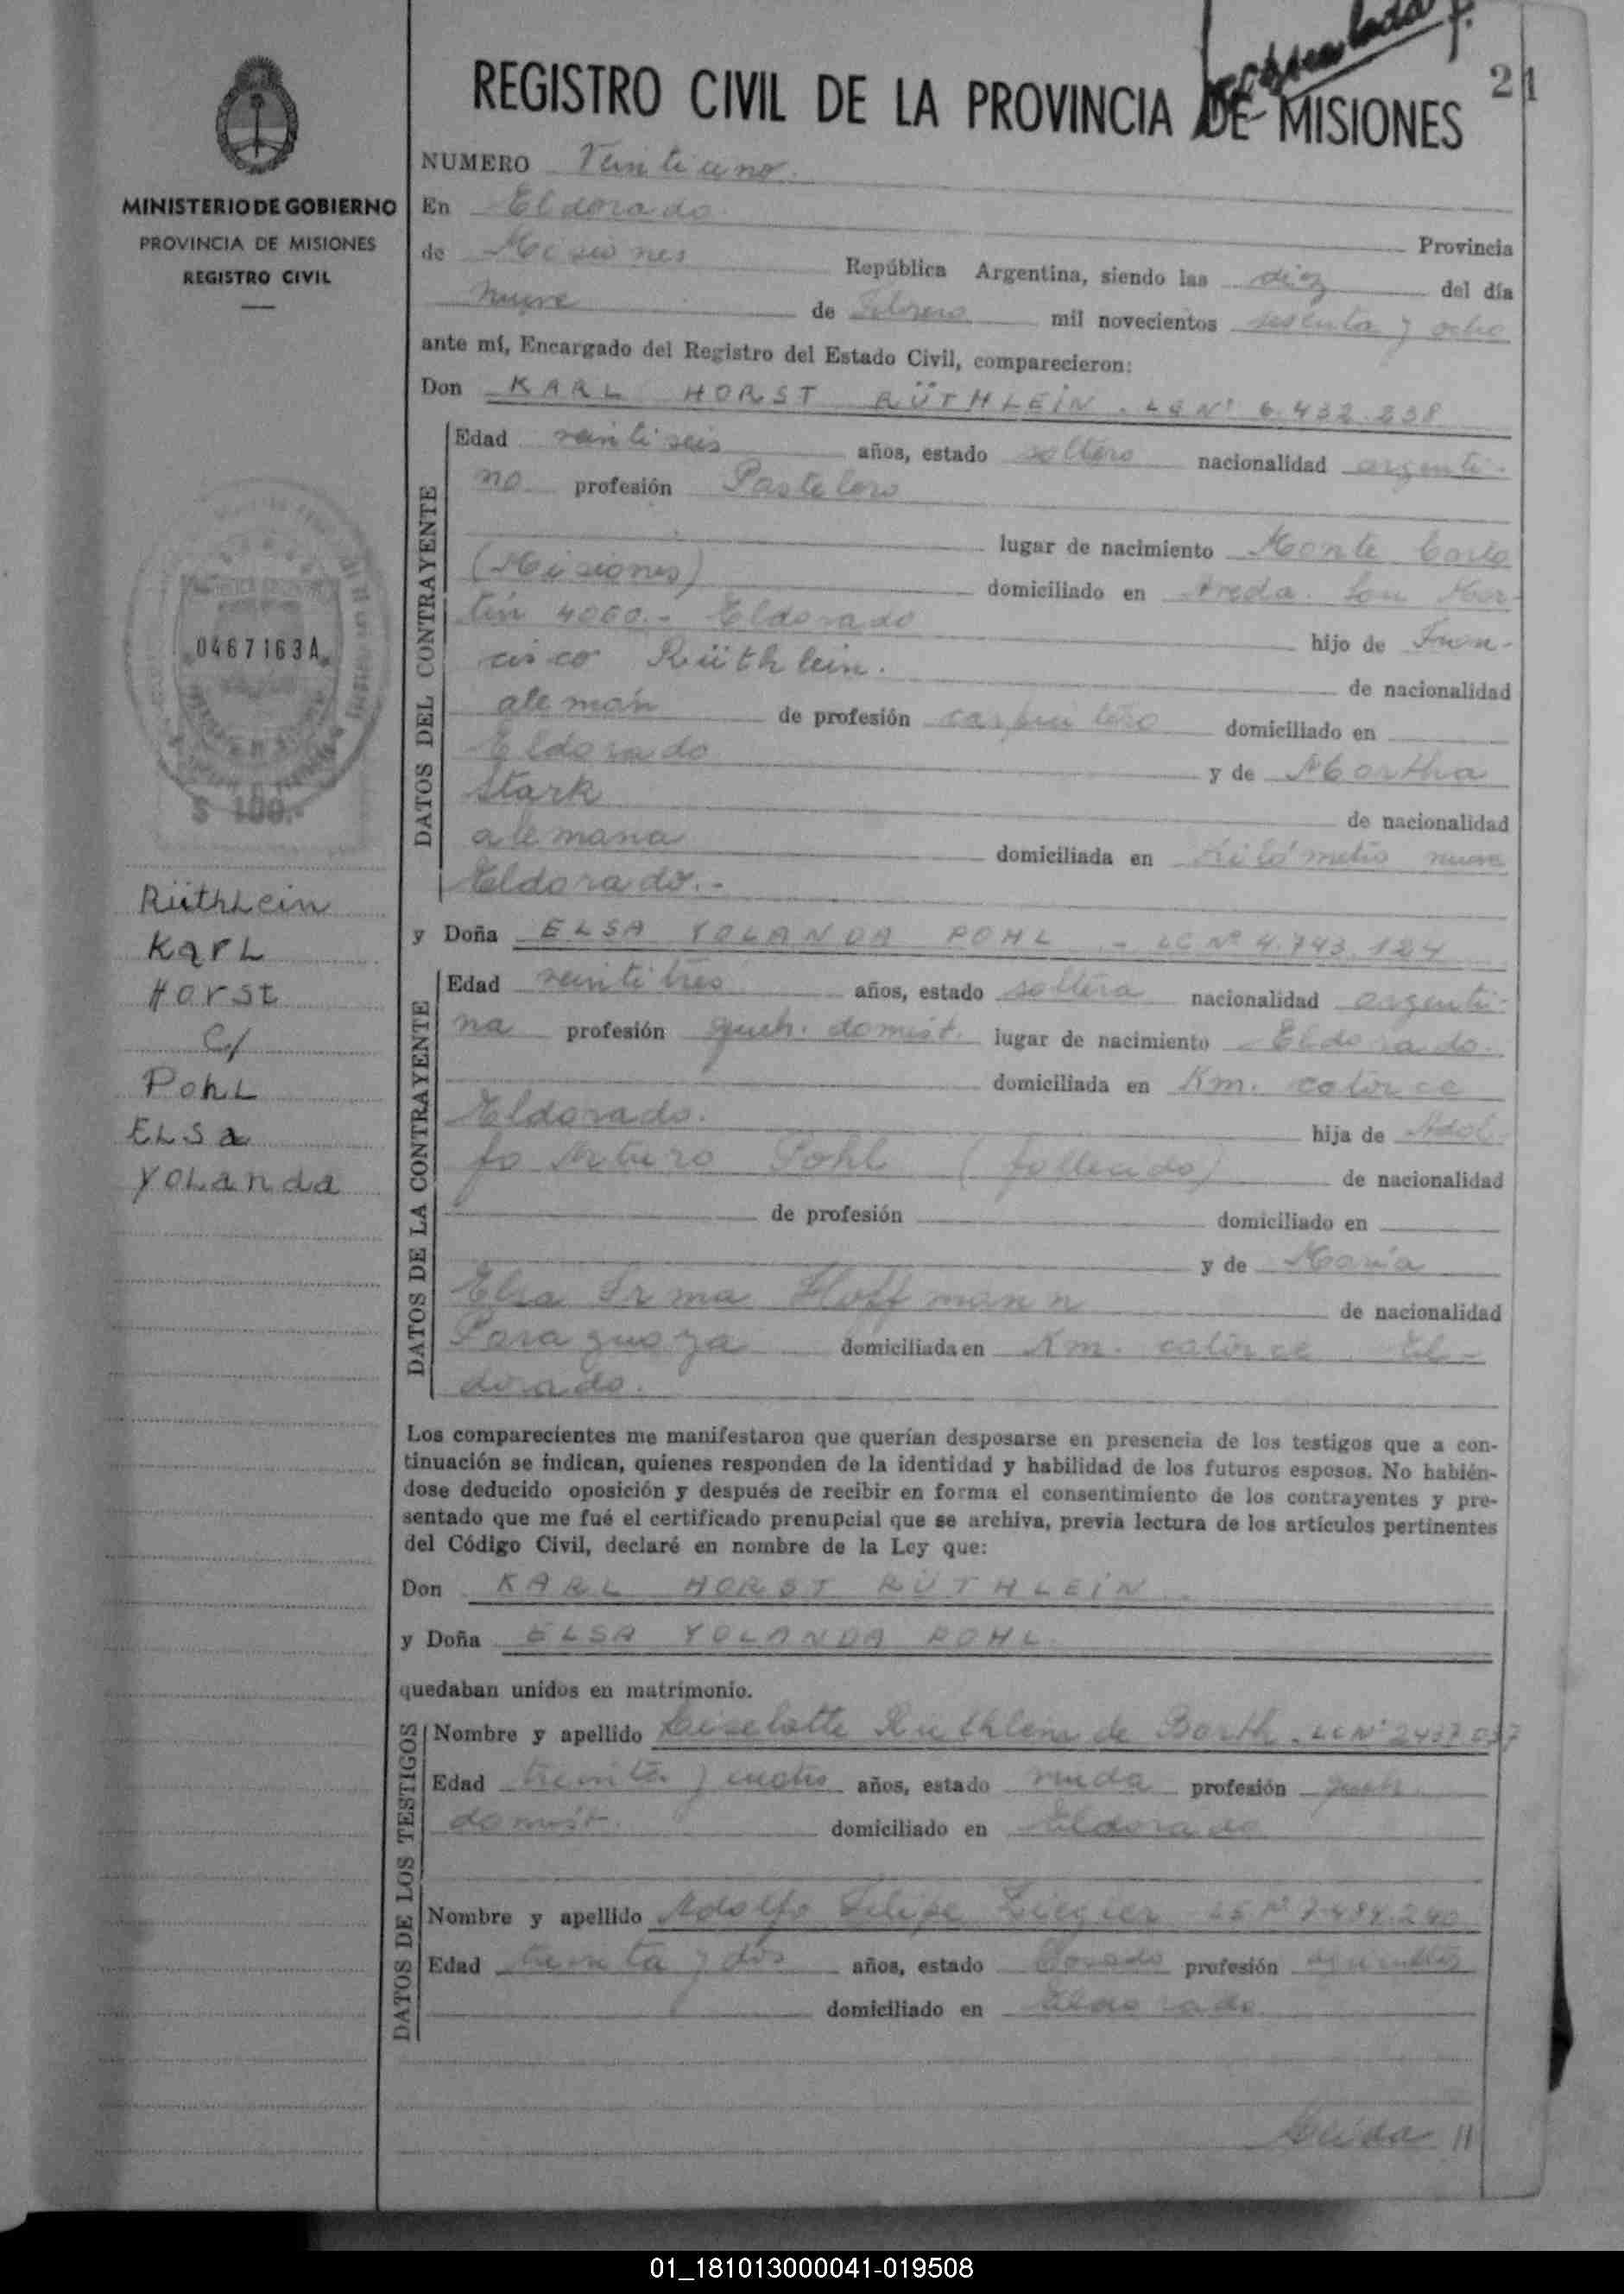 21
REGISTRO CIVIL DE LA PROVINCIA DE MISIONES
MINISTERIO DE GOBIERNO
PROVINCIA DE MISIONES
REGISTRO CIVIL
0467163A
$ 100.-
Rüthlein
Karl
Horst
c/
Pohl
Elsa
Yolanda
NUMERO Veintiuno.
En Eldorado. Provincia
de Misiones República Argentina, siendo las diez del día
nueve de Febrero mil novecientos sesenta y ocho
ante mí, Encargado del Registro del Estado Civil, comparecieron:
Don KARL HORST RÜTHLEIN. LE Nº 6.432.238
DATOS DEL CONTRAYENTE
Edad veintiseis años, estado soltero nacionalidad argenti-
no profesión Pastelero
lugar de nacimiento Monte Carlo
(Misiones) domiciliado en Avda. San Mar-
tín 4060.- Eldorado hijo de Fran-
cisco Rüthlein. de nacionalidad
alemán de profesión carpintero domiciliado en
Eldorado y de Martha
Stark de nacionalidad
alemana domiciliada en kilómetro nueve
Eldorado.-
y Doña ELSA YOLANDA POHL .- LC Nº 4.743.124
DATOS DE LA CONTRAYENTE
Edad veintitres años, estado soltera nacionalidad argenti-
na profesión queh. domést. lugar de nacimiento Eldorado.
domiciliada en Km. catorce
Eldorado. hija de Adol-
fo Arturo Pohl (fallecido) de nacionalidad
de profesión domiciliado en
y de María
Elsa Irma Hoffmann de nacionalidad
Paraguaya domiciliada en Km. catorce El-
dorado.
Los comparecientes me manifestaron que querían desposarse en presencia de los testigos que a con-
tinuación se indican, quienes responden de la identidad y habilidad de los futuros esposos. No habién-
dose deducido oposición y después de recibir en forma el consentimiento de los contrayentes y pre-
sentado que me fué el certificado prenupcial que se archiva, previa lectura de los artículos pertinentes
del Código Civil, declaré en nombre de la Ley que:
Don KARL HORST RÜTHLEIN
y Doña ELSA YOLANDA POHL
quedaban unidos en matrimonio.
DATOS DE LOS TESTIGOS
Nombre y apellido Lieselotte Ruthlein de Barth. LC Nº 2437.037
Edad treinta y cuatro años, estado viuda profesión queh.
domést. domiciliado en Eldorado
Nombre y apellido Adolfo Felipe Ziegler LE Nº 7.484.240
Edad treinta y dos años, estado Casado profesión agricultor
domiciliado en Eldorado
01_181013000041-019508